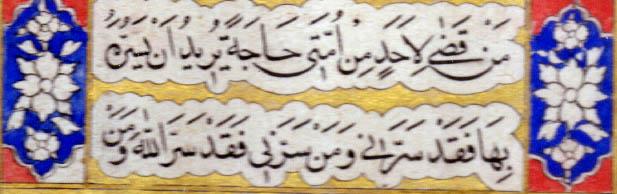 مَنْ قَضٰى لِاَحَدٍ مِنْ اُمَّتٖى حَاجَةً يُرٖيدُ اَنْ يَسُرَّهُ
بِهَا فَقَدْ سَرَّنٖى وَمَنْ سَرَّنٖى فَقَدْ سَرَّ اللّٰهَ وَمَنْ